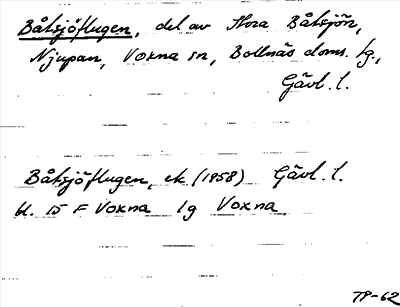 Båtsjöflugen, del av Stora Båtsjön,
Njupan, Voxna sn, Bollnäs doms. tg.,
Gävl. l.
Båtsjöflugen, ek. (1958) Gävl. l.
bl. 15 F Voxna lg Voxna
TP-62